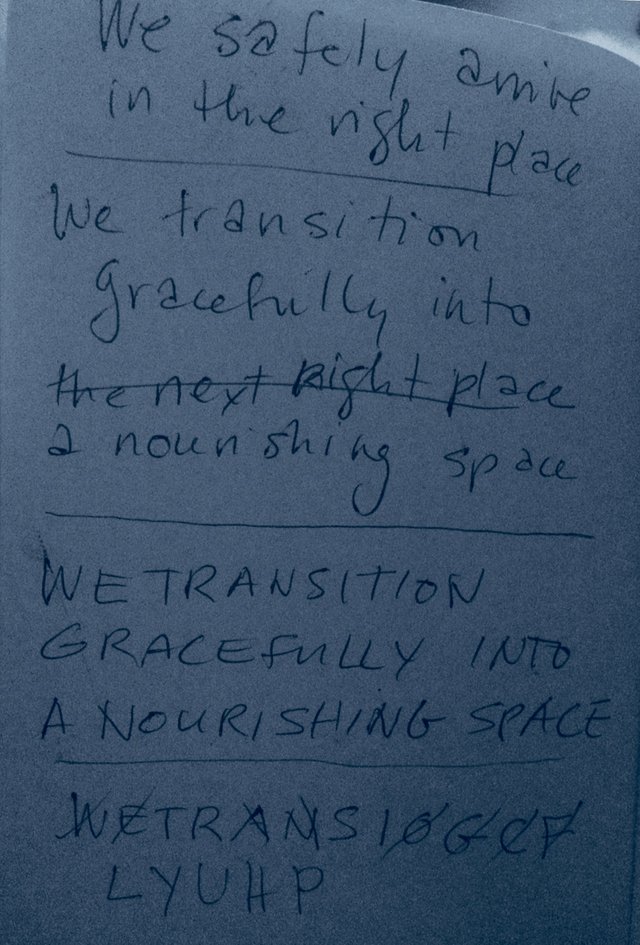 We safely arrive
in the right place
We transition
gracefully into
the next right place
a nourishing space
WE TRANSITION
GRACEFULLY INTO
A NOURISHING SPACE
WETRANSIOGCF
LYUHP